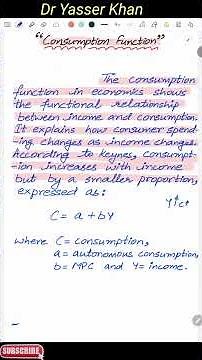 Dr Yasser Khan
"Consumption function"
The consumption
function in economics shows
the functional relationship
between income and consumption.
It explains how consumer spend
-ing changes as income changes.
According to keynes, consumpt-
-ion increases with income
but by a smaller proportion,
expressed as:
Y↑C↑
C = a + bY
where C = consumption,
a = autonomous consumption,
b = MPC and Y = income.
SUBSCRIBE